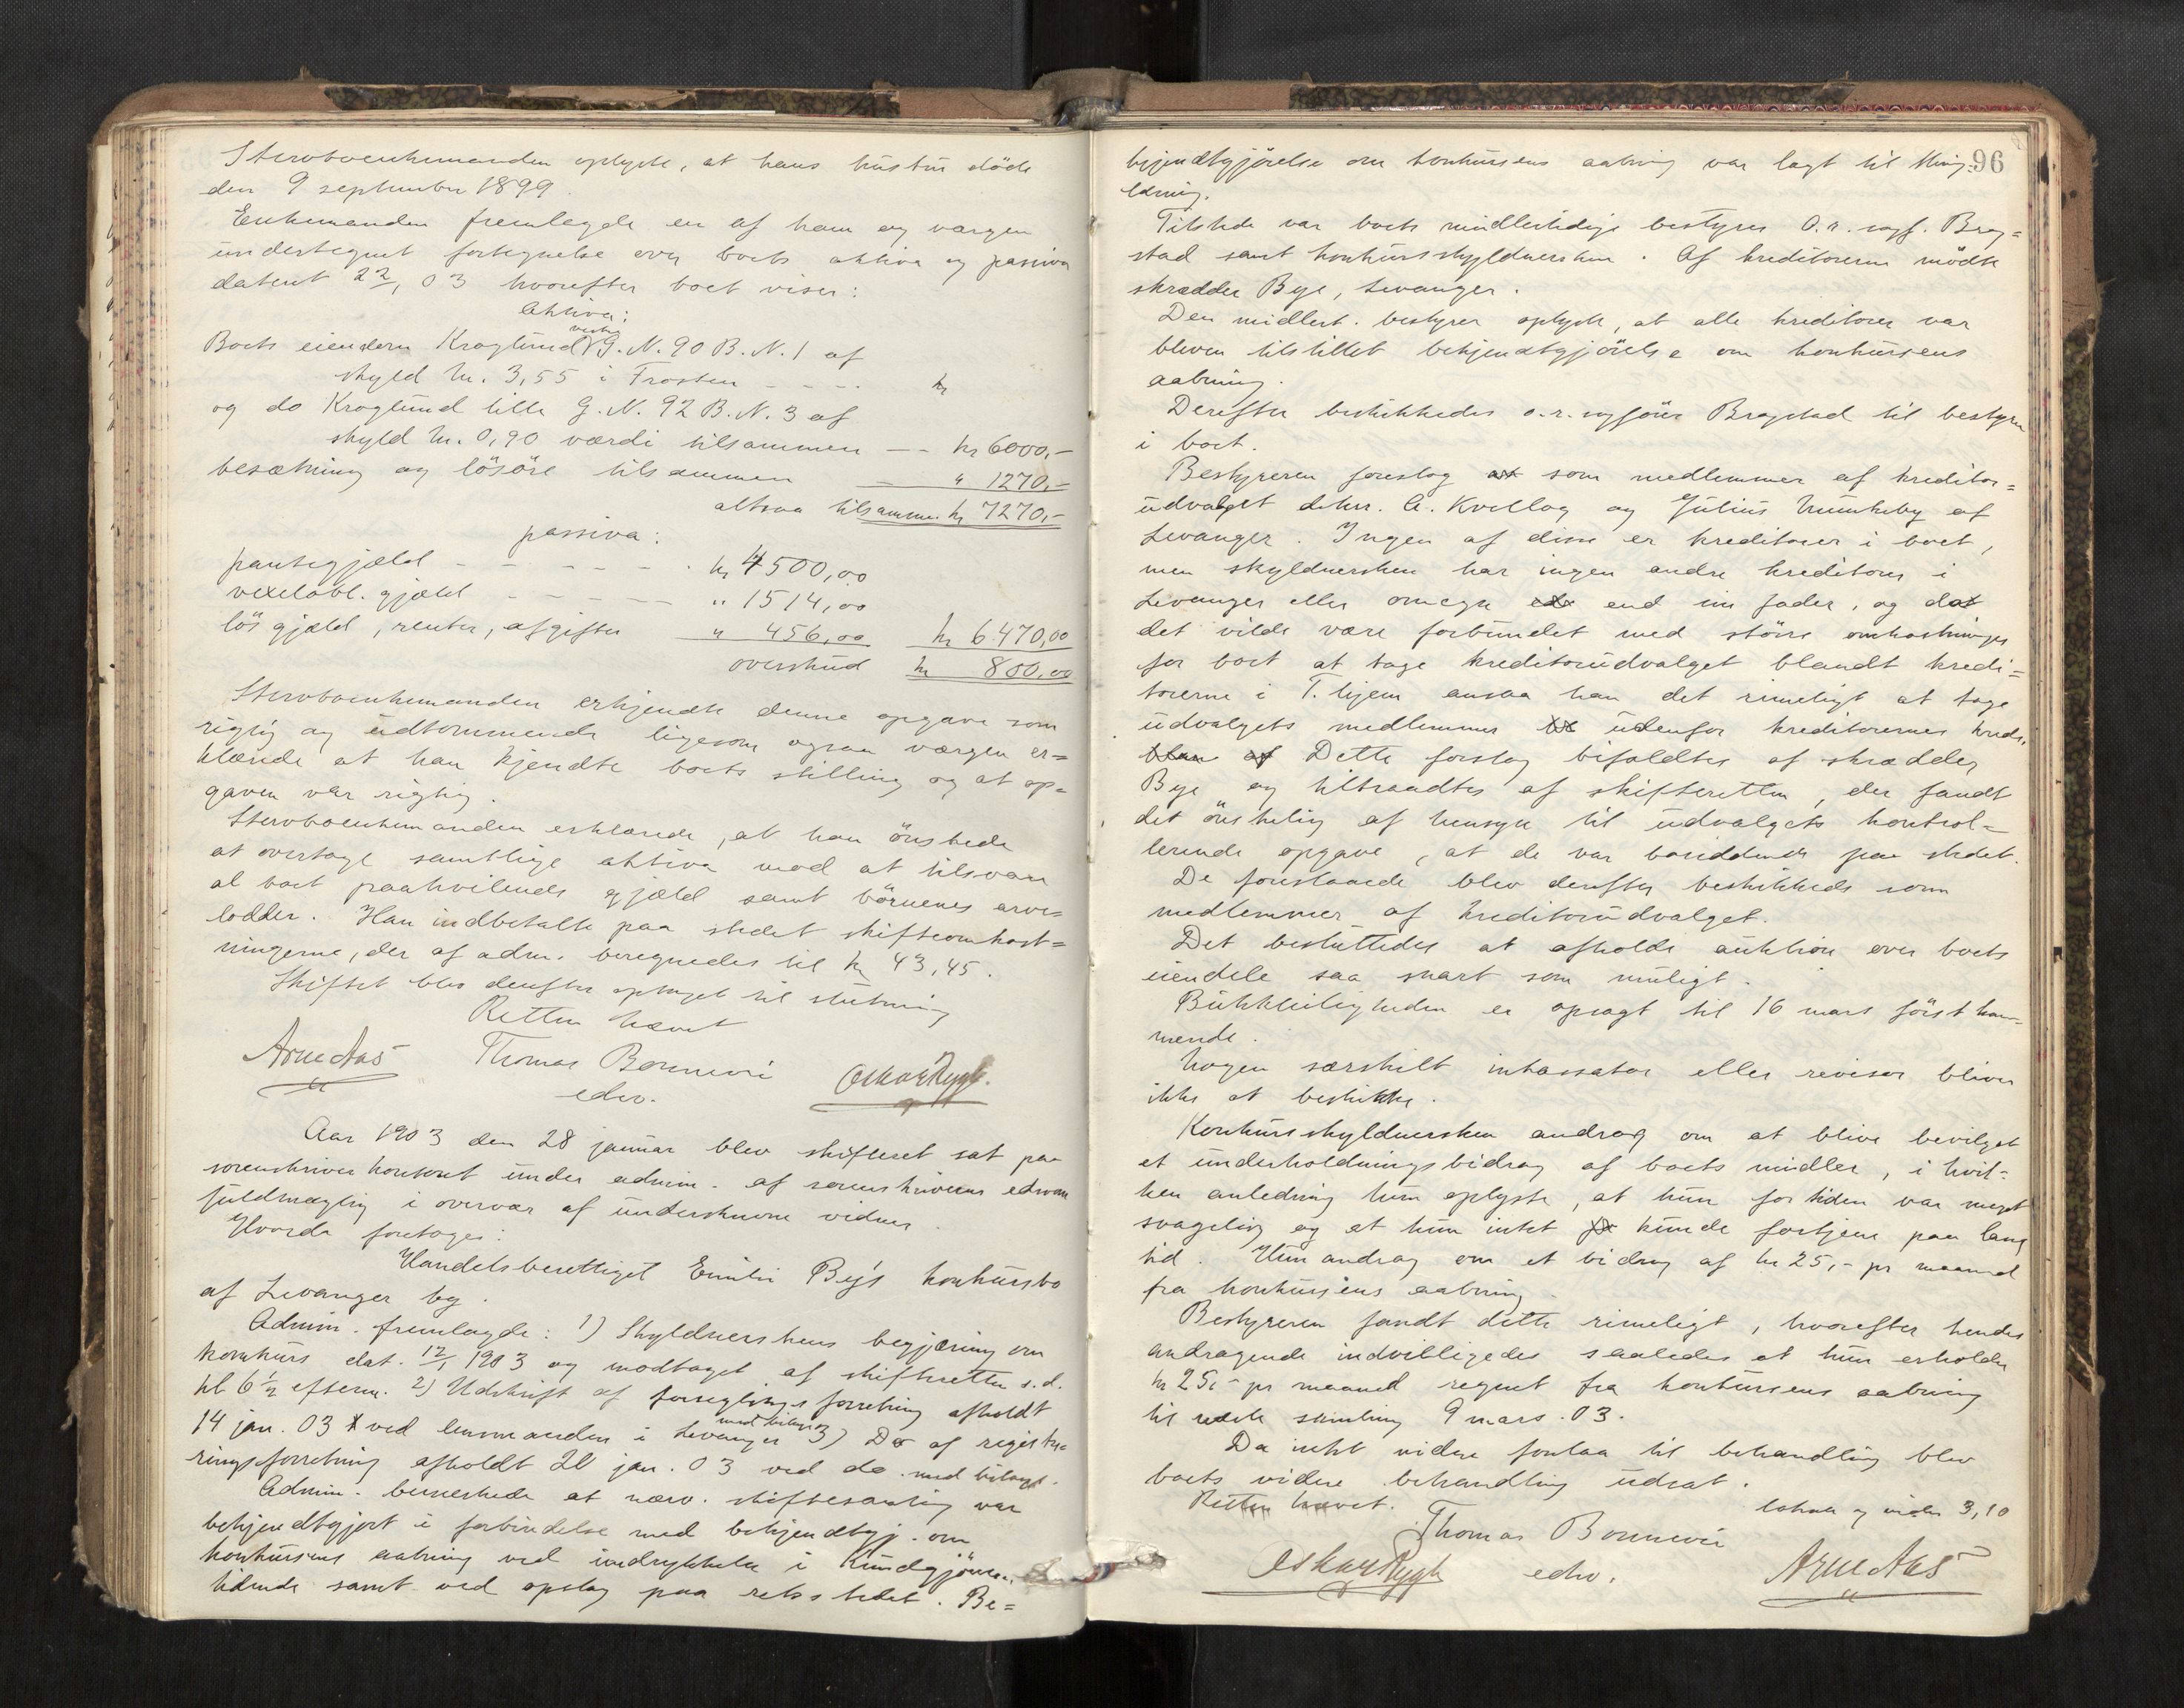 Stervboenkemanden oplyste, at hans hustru döde
den 9 september 1899.
Enkemanden fremlagde en af ham og vergen
undertegnet fortegnelse over boets aktiva og passiva
dateret 22/1 03 hvorefter boet viser:
Aktiva:
Boets eiendom Kroglund vestre G. N. 90 B. N. 1 af
skyld M. 3,55 i Frosten - - - - kr
og do Kroglund lille G. N. 92 B. N. 3 af
skyld M. 0,90 værdi tilsammen - - kr 6000,-
besætning og lösöre tilsammen " 1270,-
altsaa tilsammen kr 7270,-
passiva:
pantegjæld - - - - - - kr 4500,00
vexelobl. gjæld - - - - - " 1514,00
lös gjæld, renter, afgifter " 456,00 kr 6470,00
overskud kr 800,00
Stervboenkemanden erkjendte denne opgave som
rigtig og udtömmende ligesom ogsaa værgen er=
klærede at han kjendte boets stilling og at op=
gaven var rigtig.
Stervboenkemanden erklærede, at han önskede
at overtage samtlige aktiva mod at tilsvare
al boet paahvilende gjæld samt börnenes arve=
lodder. Han indbetalte paa stedet skifteomkost=
ningerne, der af adm. beregnedes til kr 43,45.
Skiftet blev derefter optaget til slutning
Retten hævet
Arne Aas Thomas Bonnevie Oskar Rygh.
edsv.
Aar 1903 den 28 januar blev skifteret sat paa
sorenskriverkontoret under admin. af sorenskriverens edsvorne
fuldmægtig i overvær af underskrevne vidner.
Hvorda foretoges:
Handelsberettiget Emilie Bye's konkursbo
af Levanger by.
Admin. fremlagde: 1) Skyldnerskens begjæring om
konkurs dat. 12/1 1903 og modtaget af skifteretten s.d.
kl 6 1/2 efterm. 2) Udskrift af forseglingsforretning afholdt
14 jan. 03 ved lensmanden i Levanger med bilag 3) Do af registre=
ringsforretning afholdt 20 jan. 03 ved do. med bilag.
Admin. bemerkede at nærv. skiftesamling var
bekjendtgjort i forbindelse med bekjendtgj. om
konkursens aabning ved indrykkelse i Kundgjörelses
tidende samt ved opslag paa retsstedet. Be=
96
kjendtgjörelse om konkursens aabning var lagt til thing=
læsning.
Tilstede var boets midlertidige bestyrer O.r. sagf. Brag=
stad samt konkursskyldnersken. Af kreditorerne mödte
skrædder Bye, Levanger.
Den midlert. bestyrer oplyste, at alle kreditorer var
bleven tilstillet bekjendtgjörelse om konkursens
aabning.
Derefter beskikkedes o.r. sagförer Bragstad til bestyrer
i boet.
Bestyreren foreslog at som medlemmer af kreditor=
udvalget dhrr. A. Kvellog og Julius Munkeby af
Levanger. Ingen af disse er kreditorer i boet,
men skyldnersken har ingen andre kreditorer i
Levanger eller omegn end sin fader, og da
det vilde være forbundet med större omkostninger
for boet at tage kreditorudvalget blandt kredi=
torerne i T.hjem ansaa han det rimeligt at tage
udvalgets medlemmer udenfor kreditorernes kreds.
Dette forslag bifaldtes af skrædder
Bye og tiltraadtes af skifteretten, der fandt
det önskelig af hensyn til udvalgets kontrol=
lerende opgave, at de var boende paa stedet.
De foreslaaede blev derefter beskikkede som
medlemmer af kreditorudvalget.
Det besluttedes at afholde auktion over boets
eiendele saa snart som muligt.
Butikleiligheden er opsagt til 16 mars först kom=
mende.
Nogen særskilt inkassator eller revisor bliver
ikke at beskikke.
Konkursskyldnersken androg om at blive bevilget
et underholdningsbidrag af boets midler, i hvil=
ken anledning hun oplyste, at hun for tiden var meget
svagelig og at hun intet kunde fortjene paa lang
tid. Hun androg om et bidrag af kr 25,- pr maaned
fra konkursens aabning.
Bestyreren fandt dette rimeligt, hvorefter hendes
andragende indvilligedes saaledes at hun erholder
kr 25,- pr maaned regnet fra konkursens aabning
til næste samling 9 mars 03.
Da intet videre forelaa til behandling blev
boets videre behandling udsat.
Retten hævet. lokale og vidner 3,10
Thomas Bonnevie
Oskar Rygh edsv. Arne Aas